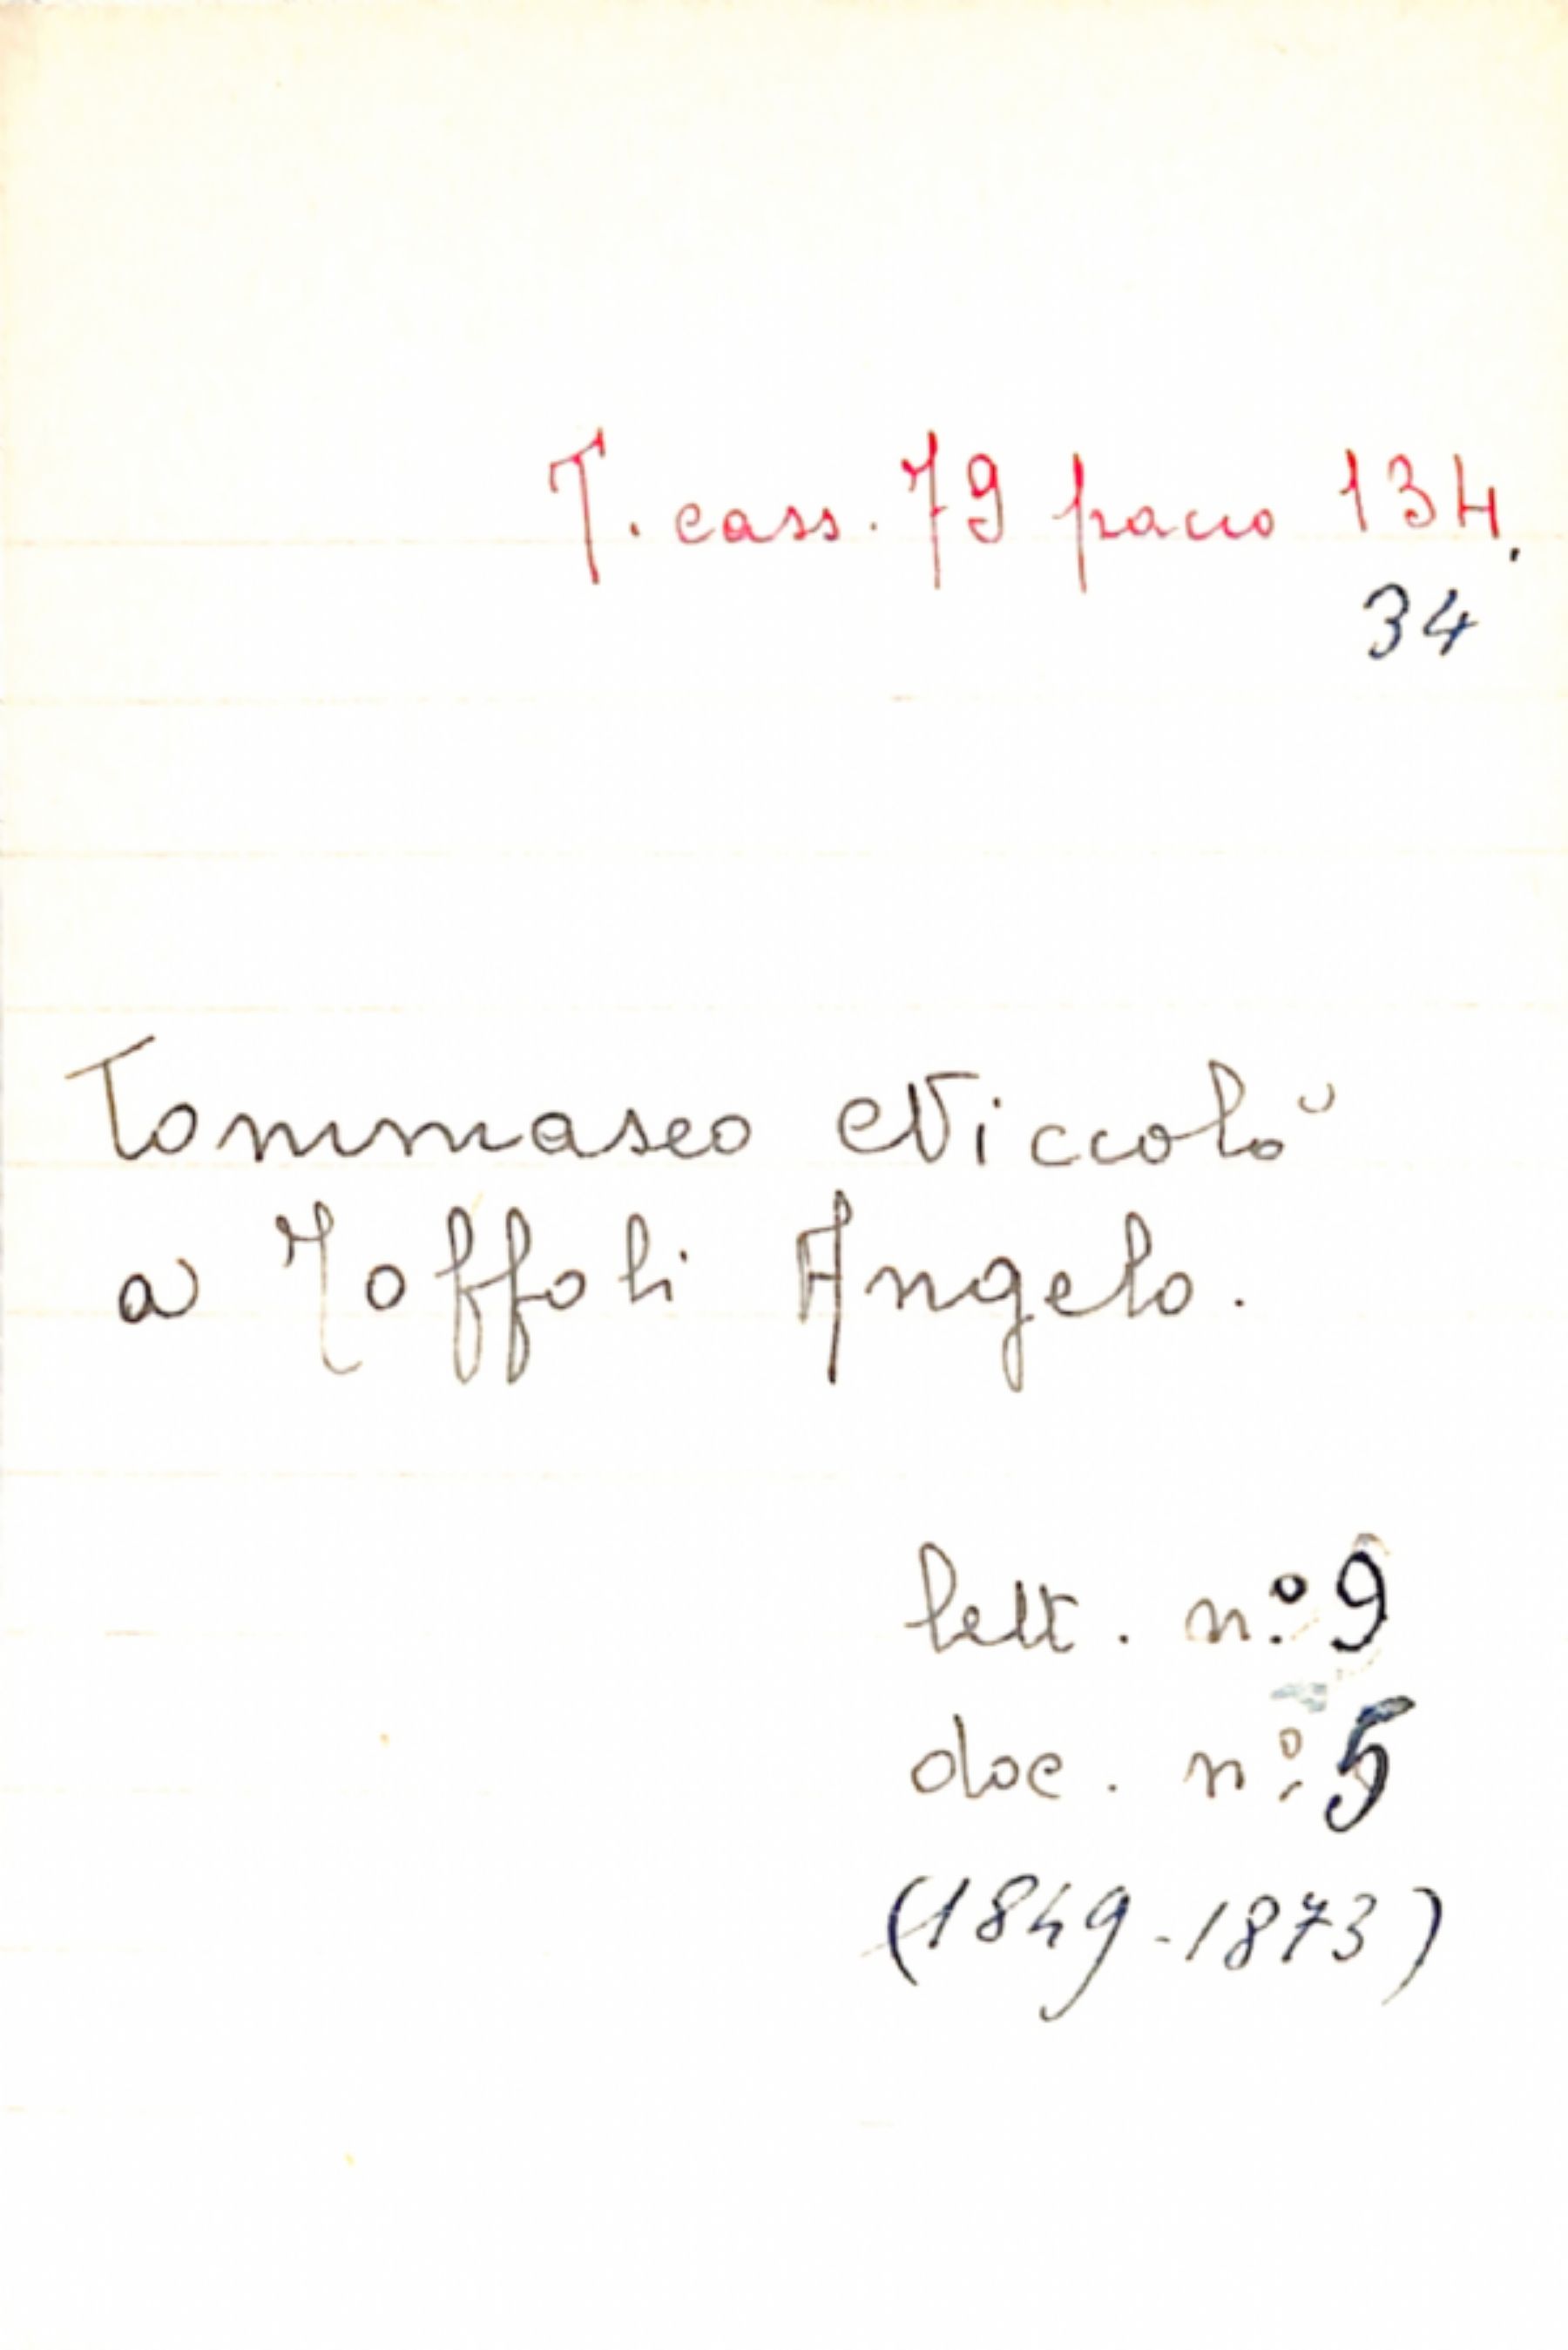 T. cass. 79 pacco 134.
34
Tommaseo Niccolò
a Toffoli Angelo.
lett. n.º 9
doc. n.º 5
(1849-1873)